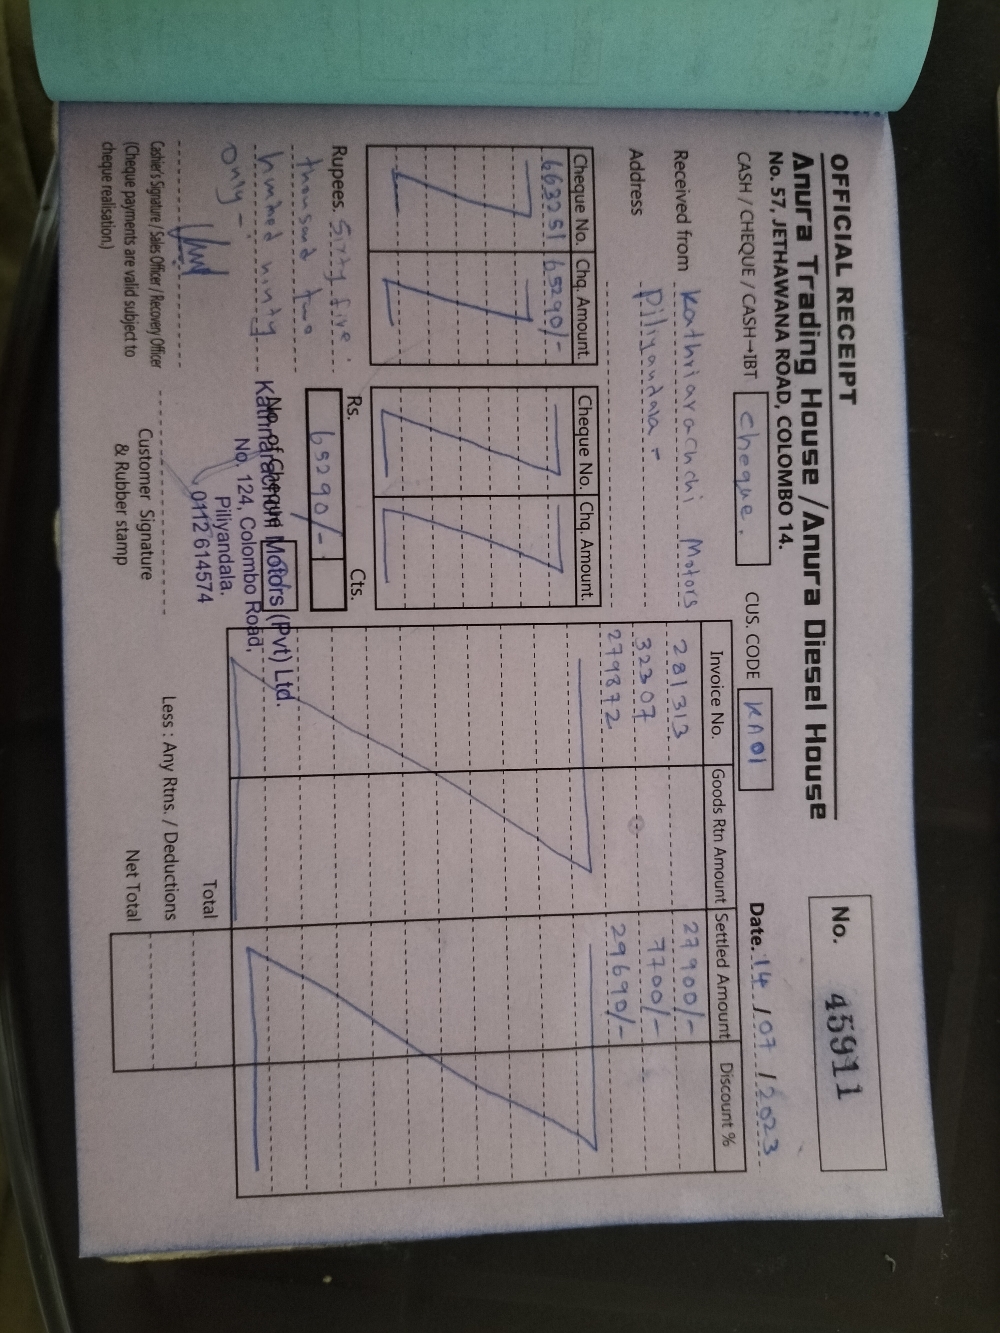 OFFICIAL RECEIPT
No. 45911
Anura Trading House / Anura Diesel House
No. 57, JETHAWANA ROAD, COLOMBO 14.
CASH / CHEQUE / CASH→IBT cheque. CUS. CODE KA01 Date. 14 / 07 / 2023
Received from Kathriarachchi Motors
Address Piliyandala -
Cheque No. Chq. Amount. Cheque No. Chq. Amount.
663251 65290/-
Invoice No. Goods Rtn Amount Settled Amount Discount %
281313 27900/-
32307 7700/-
279872 29690/-
Rupees. Sixty five
thousand two
hundred ninty
only -
Rs. Cts.
65290/-
No. of Cheque
Kathriarachchi Motors (Pvt) Ltd.
No. 124, Colombo Road,
Piliyandala.
0112 614574
Cashier's Signature / Sales Officer / Recovery Officer
(Cheque payments are valid subject to
cheque realisation.)
Customer Signature
& Rubber stamp
Total
Less : Any Rtns. / Deductions
Net Total